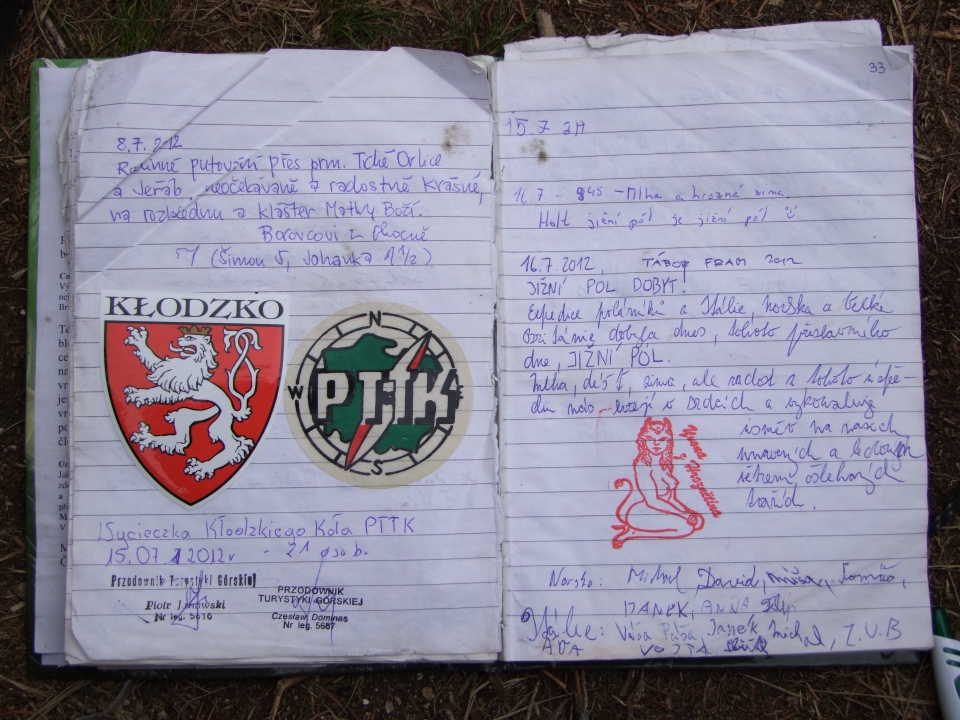 8.7. 2012
Rodinné putování přes pram. Tiché Orlice
a Jeřáb neočekávaně a radostně krásné,
na rozhlednu a klášter Matky Boží.
Borovcovi z Chocně
(Šimon 5, Johanka 1 1/2)
KŁODZKO
N
W
PTTK
S
Wycieczka Kłodzkiego Koła PTTK
15.07.2012r - 21 osób.
Przodownik Turystyki Górskiej
Piotr
Nr leg. 5610
PRZODOWNIK
TURYSTYKI GÓRSKIEJ
Czesław Dominas
Nr leg. 5667
33
15.7
16.7 - 845 - Mlha a hrozná zima
Holt jižní pól je jižní pól
16.7.2012, TÁBOR FRAM 2012
JIŽNÍ POL DOBYT!
Expedice polárníků z Itálie, Norska a Velké
Británie dobyla dnes, tohoto
dne, JIŽNÍ POL.
Mlha, déšť, zima, ale radost z tohoto
v srdcích a
úsměv na našich
unavených a ledovým
větrem ošlehaných
tvářích.
Norsko: Michal, David, Míša, Tomáš,
DANEK, ANNA Filip
Itálie: Váša Páša Jašek Michal, Z.V.B
ADA VOJTA